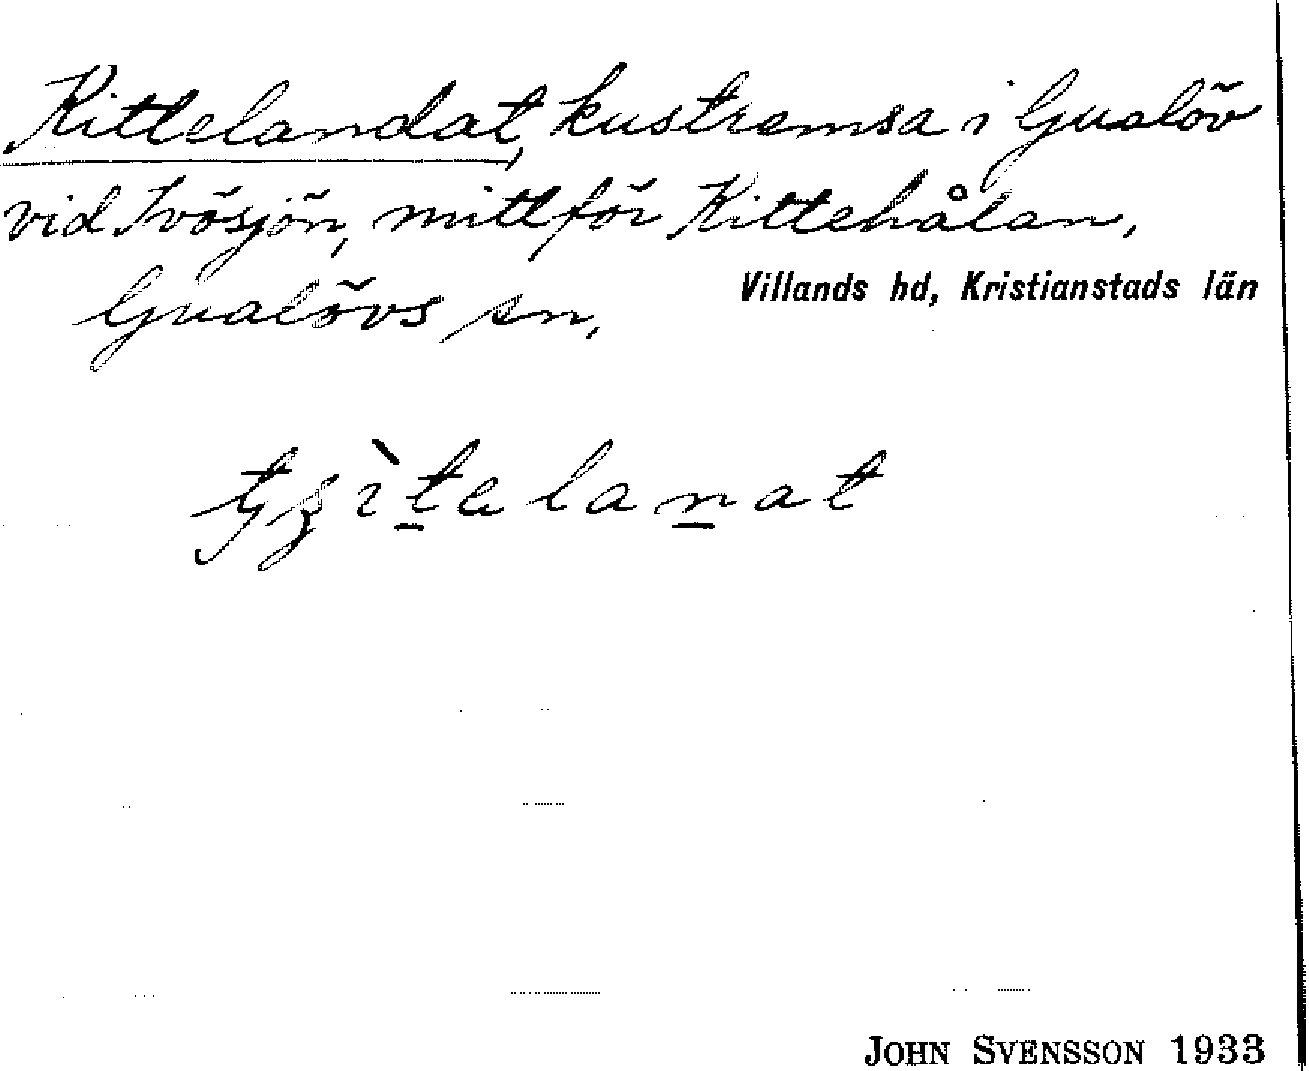 Kittelandat, kustremsa i Gualöv
vid Ivösjön, mitt för Kittehålan,
Gualövs sn, Villands hd, Kristianstads län
JOHN SVENSSON 1933